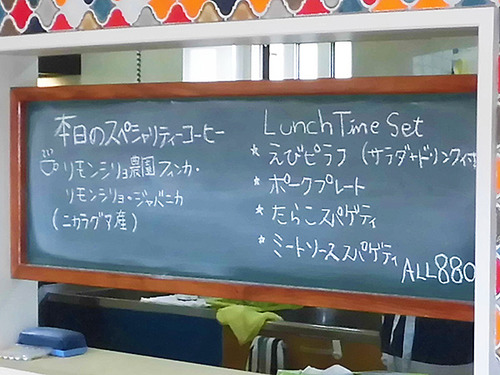 本日のスペシャリティーコーヒー
リモンシリョ農園フィンカ・
リモンシリョ・ジャバニカ
(ニカラグア産)
Lunch Time Set
* えびピラフ (サラダ+ドリンク付
* ポークプレート
* たらこスパゲティ
* ミートソーススパゲティ
ALL 880